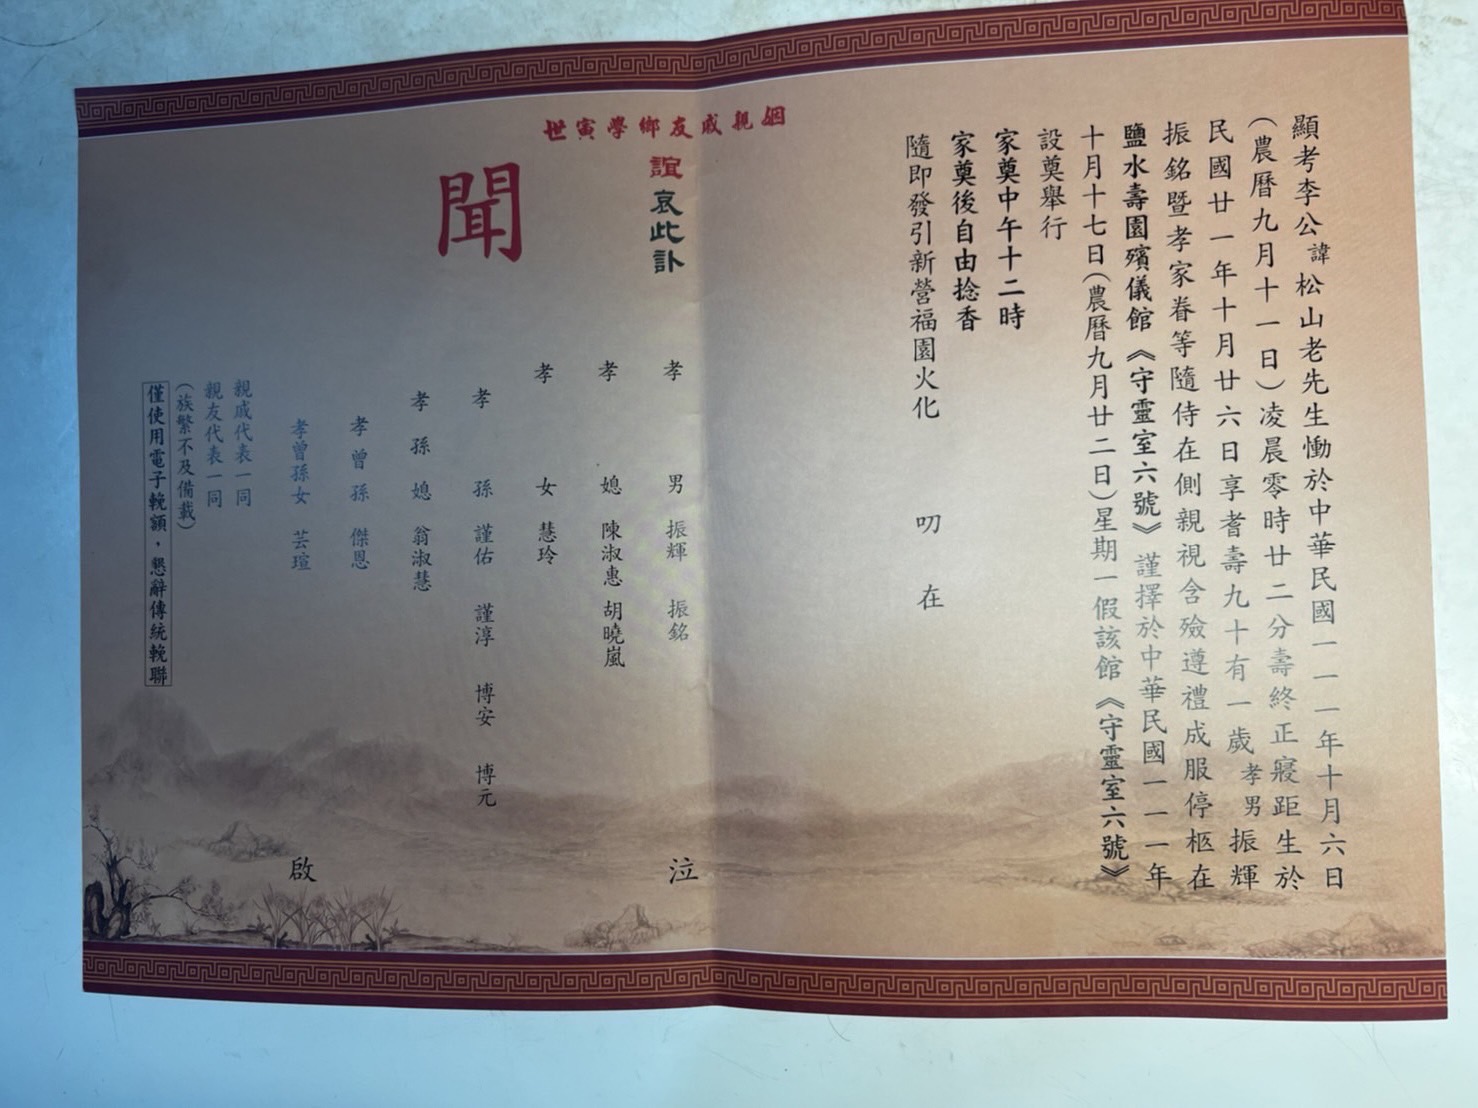 顯考李公諱松山老先生慟於中華民國一一一年十月六日
(農曆九月十一日)凌晨零時廿二分壽終正寢距生於
民國廿一年十月廿六日享耆壽九十有一歲孝男振輝
振銘暨孝家眷等隨侍在側親視含殮遵禮成服停柩在
鹽水壽園殯儀館《守靈室六號》謹擇於中華民國一一一年
十月十七日(農曆九月廿二日)星期一假該館《守靈室六號》
設奠舉行
家奠中午十二時
家奠後自由捻香
隨即發引新營福園火化 叨在
姻親戚友鄉學寅世
誼哀此訃
聞
孝男 振輝 振銘 泣
孝媳 陳淑惠 胡曉嵐
孝女 慧玲
孝孫 謹佑 謹淳 博安 博元
孝孫媳 翁淑慧
孝曾孫 傑恩
孝曾孫女 芸瑄 啟
親戚代表一同
親友代表一同
(族繁不及備載)
僅使用電子輓額，懇辭傳統輓聯